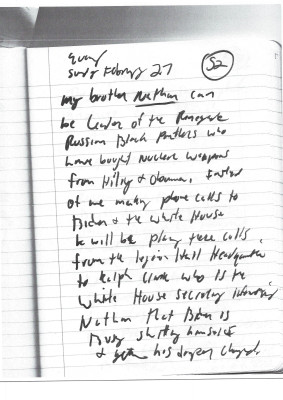 Sunday February 27
52
my brother Nathan can
be Leader of the Renegade
Russian Black Panthers who
have bought Nuclear weapons
from Hillary & Obama. Instead
of me making phone calls to
Biden & the White House
he will be these calls
from the Legion Hall Headquarters
to Ralph who is the
White House Secretary informing
Nathan that Biden is
Busy shitting himself
& his diaper changed.